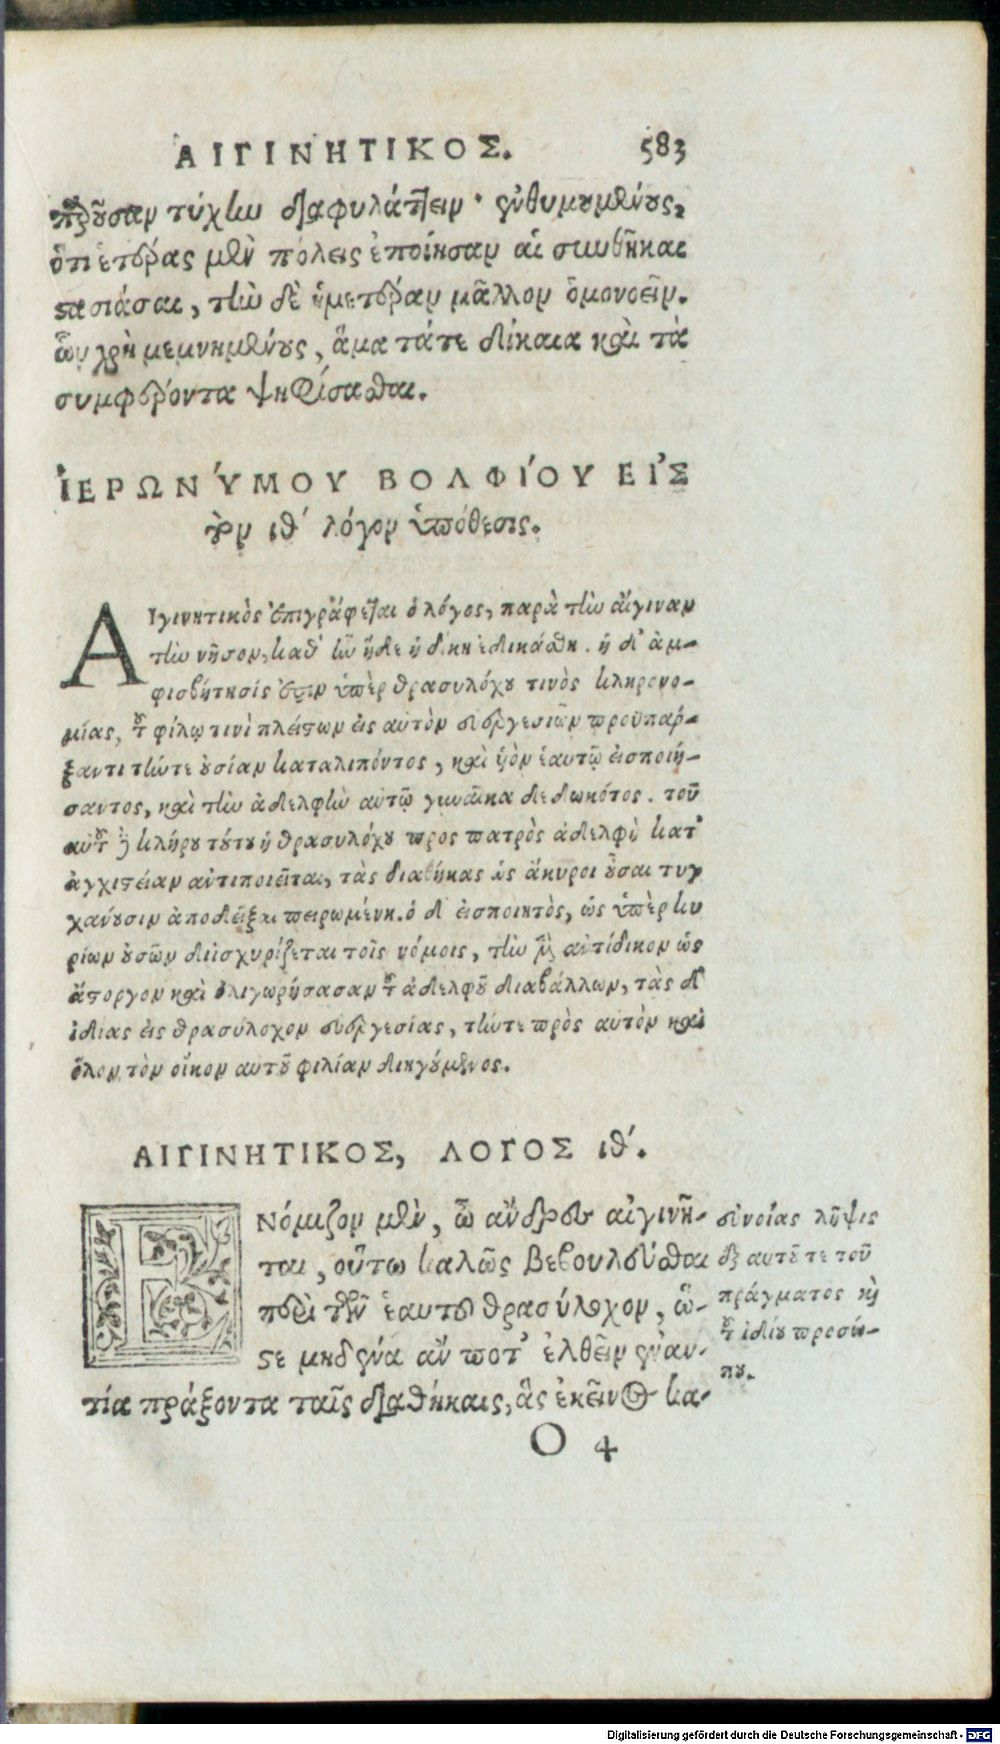 ΑΙΓΙΝΗΤΙΚΟΣ. 583
παροῦσαν τύχην διαφυλάττειν· ἐνθυμουμένους,
ὅτι ἑτέρας μὲν πόλεις ἐποίησαν αἱ συνθῆκαι
στασιάσαι, τὴν δὲ ἡμετέραν μᾶλλον ὁμονοεῖν.
ὧν χρὴ μεμνημένους, ἅμα τά τε δίκαια καὶ τὰ
συμφέροντα ψηφίσασθαι.
ἹΕΡΩΝΎΜΟΥ ΒΟΛΦΊΟΥ ΕΙ᾿Σ
τὸν ιθ´ λόγον ὑπόθεσις.
ΑΙγινητικὸς ἐπιγράφεται ὁ λόγος, παρὰ τὴν αἴγιναν
τὴν νῆσον, καθ᾿ ἣν ἥδε ἡ δίκη ἐδικάσθη. ἡ δ᾿ ἀμ-
φισβήτησίς ἐστιν ὑπὲρ θρασυλόχου τινὸς κληρονο-
μίας, τοῦ φίλῳ τινὶ πλείστων εἰς αὐτὸν εὐεργεσιῶν προϋπάρ-
ξαντι τήν τε οὐσίαν καταλιπόντος, καὶ υἱὸν ἑαυτῷ εἰσποιή-
σαντος, καὶ τὴν ἀδελφὴν αὐτῷ γυναῖκα δεδωκότος. τοῦ
αὐτοῦ δὲ κλήρου τούτου ἡ θρασυλόχου πρὸς πατρὸς ἀδελφὴ κατ᾿
ἀγχιστείαν ἀντιποιεῖται, τὰς διαθήκας ὡς ἄκυροι οὖσαι τυγ
χάνουσιν ἀποδεῖξαι πειρωμένη. ὁ δ᾿ εἰσποιητὸς, ὡς ὑπὲρ κυ
ρίων οὐσῶν διϊσχυρίζεται τοῖς νόμοις, τὴν μὲν ἀντίδικον ὡς
ἄστοργον καὶ ὀλιγωρήσασαν τοῦ ἀδελφοῦ διαβάλλων, τὰς δ᾿
ἰδίας εἰς θρασύλοχον εὐεργεσίας, τήν τε πρὸς αὐτὸν καὶ
ὅλον τὸν οἶκον αὐτοῦ φιλίαν διηγούμενος.
ΑΙΓΙΝΗΤΙΚΟΣ, ΛΟΓΟΣ ιθ´.
ΕΝόμιζον μὲν, ὦ ἄνδρες αἰγινῆ-
ται, οὕτω καλῶς βεβουλεῦσθαι
περὶ τῶν ἑαυτοῦ θρασύλοχον, ὥ-
στε μηδένα ἄν ποτ᾿ ἐλθεῖν ἐναν-
τία πράξοντα ταῖς διαθήκαις, ἃς ἐκεῖνος κα-
εὐνοίας λῆψις
ἐξ αὐτοῦ τε τοῦ
πράγματος καὶ
τοῦ ἰδίου προσώ-
που.
O 4
Digitalisierung gefördert durch die Deutsche Forschungsgemeinschaft - DFG